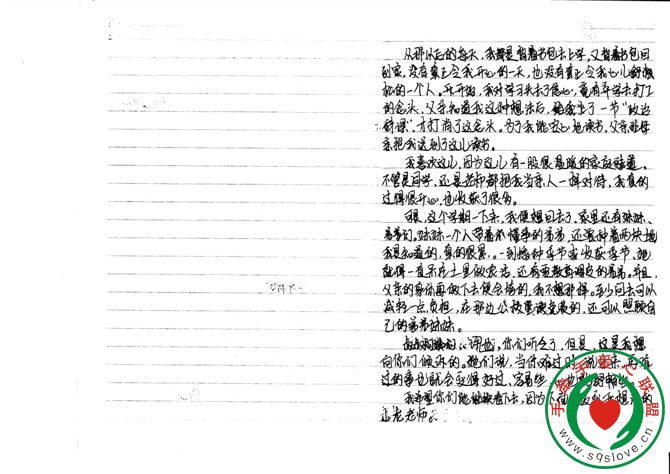 从那以后的每天，我都是背着书包去上学，又背着书包回
到家，没有真正令我开心的一天，也没有真正令我心儿舒放
松的一个人。我开始，我对学习失去了信心，竟有弃学去打工
的念头，父亲知道我这种想法后，给我上了一节“政治
课”才打消了这念头。为了我能安心地读书，父亲母
亲把我送到了这儿读书。
我喜欢这儿，因为这儿有一股很温暖的家庭味道，
不管是同学，还是老师都把我当亲人一样对待，我真的
过得很开心，也收获了很多。
可是，这个学期一下来，我便想回去了，家里还有妹妹、
弟弟们。妹妹一个人带着不懂事的弟弟，还要种着两块地
我是知道的，真的很累。一到播种季节或收获季节，她
直在土里做农活，还有要教育调皮的弟弟，并且，
父亲的身份再做下去便会的，我不想那样。至少回去可以
减轻一点负担，在那边的，还可以照顾自
己的弟弟妹妹。
谭也，你们听会了，但是，这是我想
向你们倾诉的。她们说，当你难过时，说出来，再难
过的事也就会变得好过，容易些，也
我希望你们能继续看下去，因为下面我想说的
龙老师。
手爱手童心联盟
www.sqslove.cn